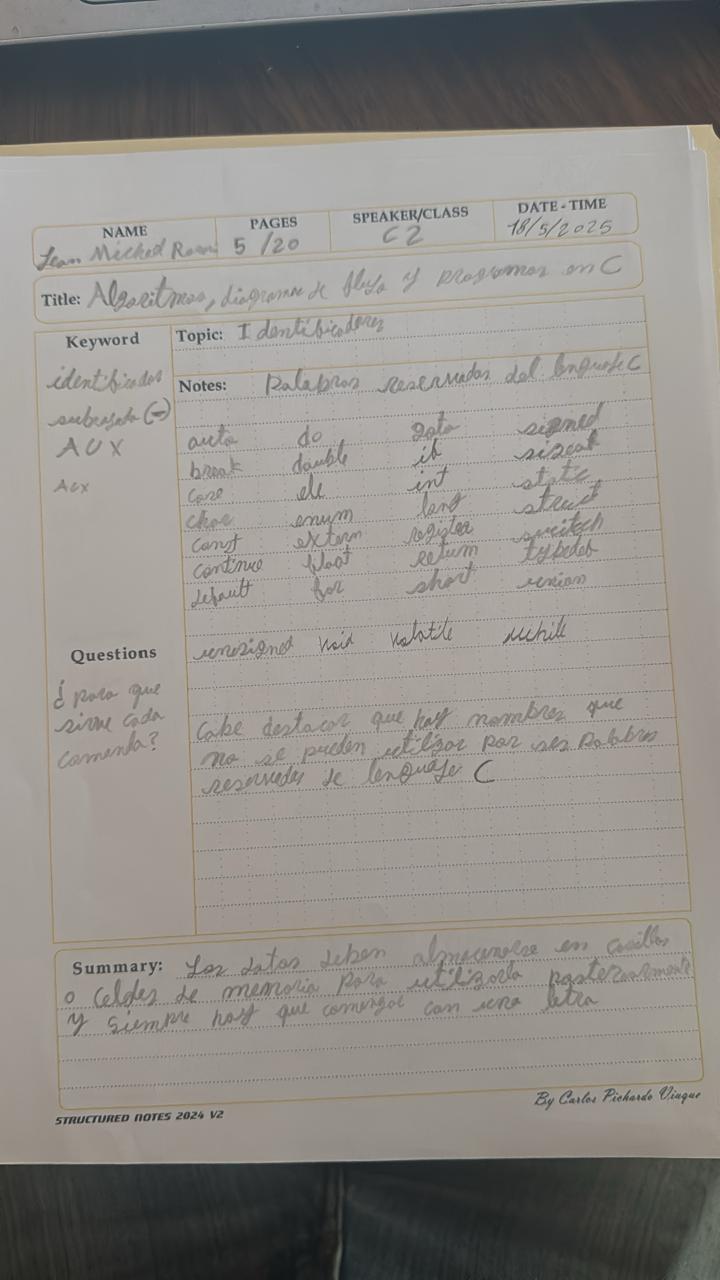 NAME PAGES SPEAKER/CLASS DATE-TIME
Jean Michel 5 /20 C2 18/5/2025
Title: Algoritmos, diagrama de flujo y programas en C
Keyword Topic: Identificadores
identificados Notes: Palabras reservadas del lenguaje C
subrayado (-)
AUX
Aux
auto do goto signed
break double if sizeof
case else int static
char enum long struct
const extern register switch
continue float return typedef
default for short union
unsigned void volatile while
Questions
¿para que
sirve cada
comando?
Cabe destacar que hay nombres que
no se pueden utilizar por ser palabras
reservadas de lenguaje C
Summary: Los datos deben almacenarse en casillas
o celdas de memoria para utilizarla posteriormente
y siempre hay que comenzar con una letra
STRUCTURED NOTES 2024 V2 By Carlos Pichardo Viuque